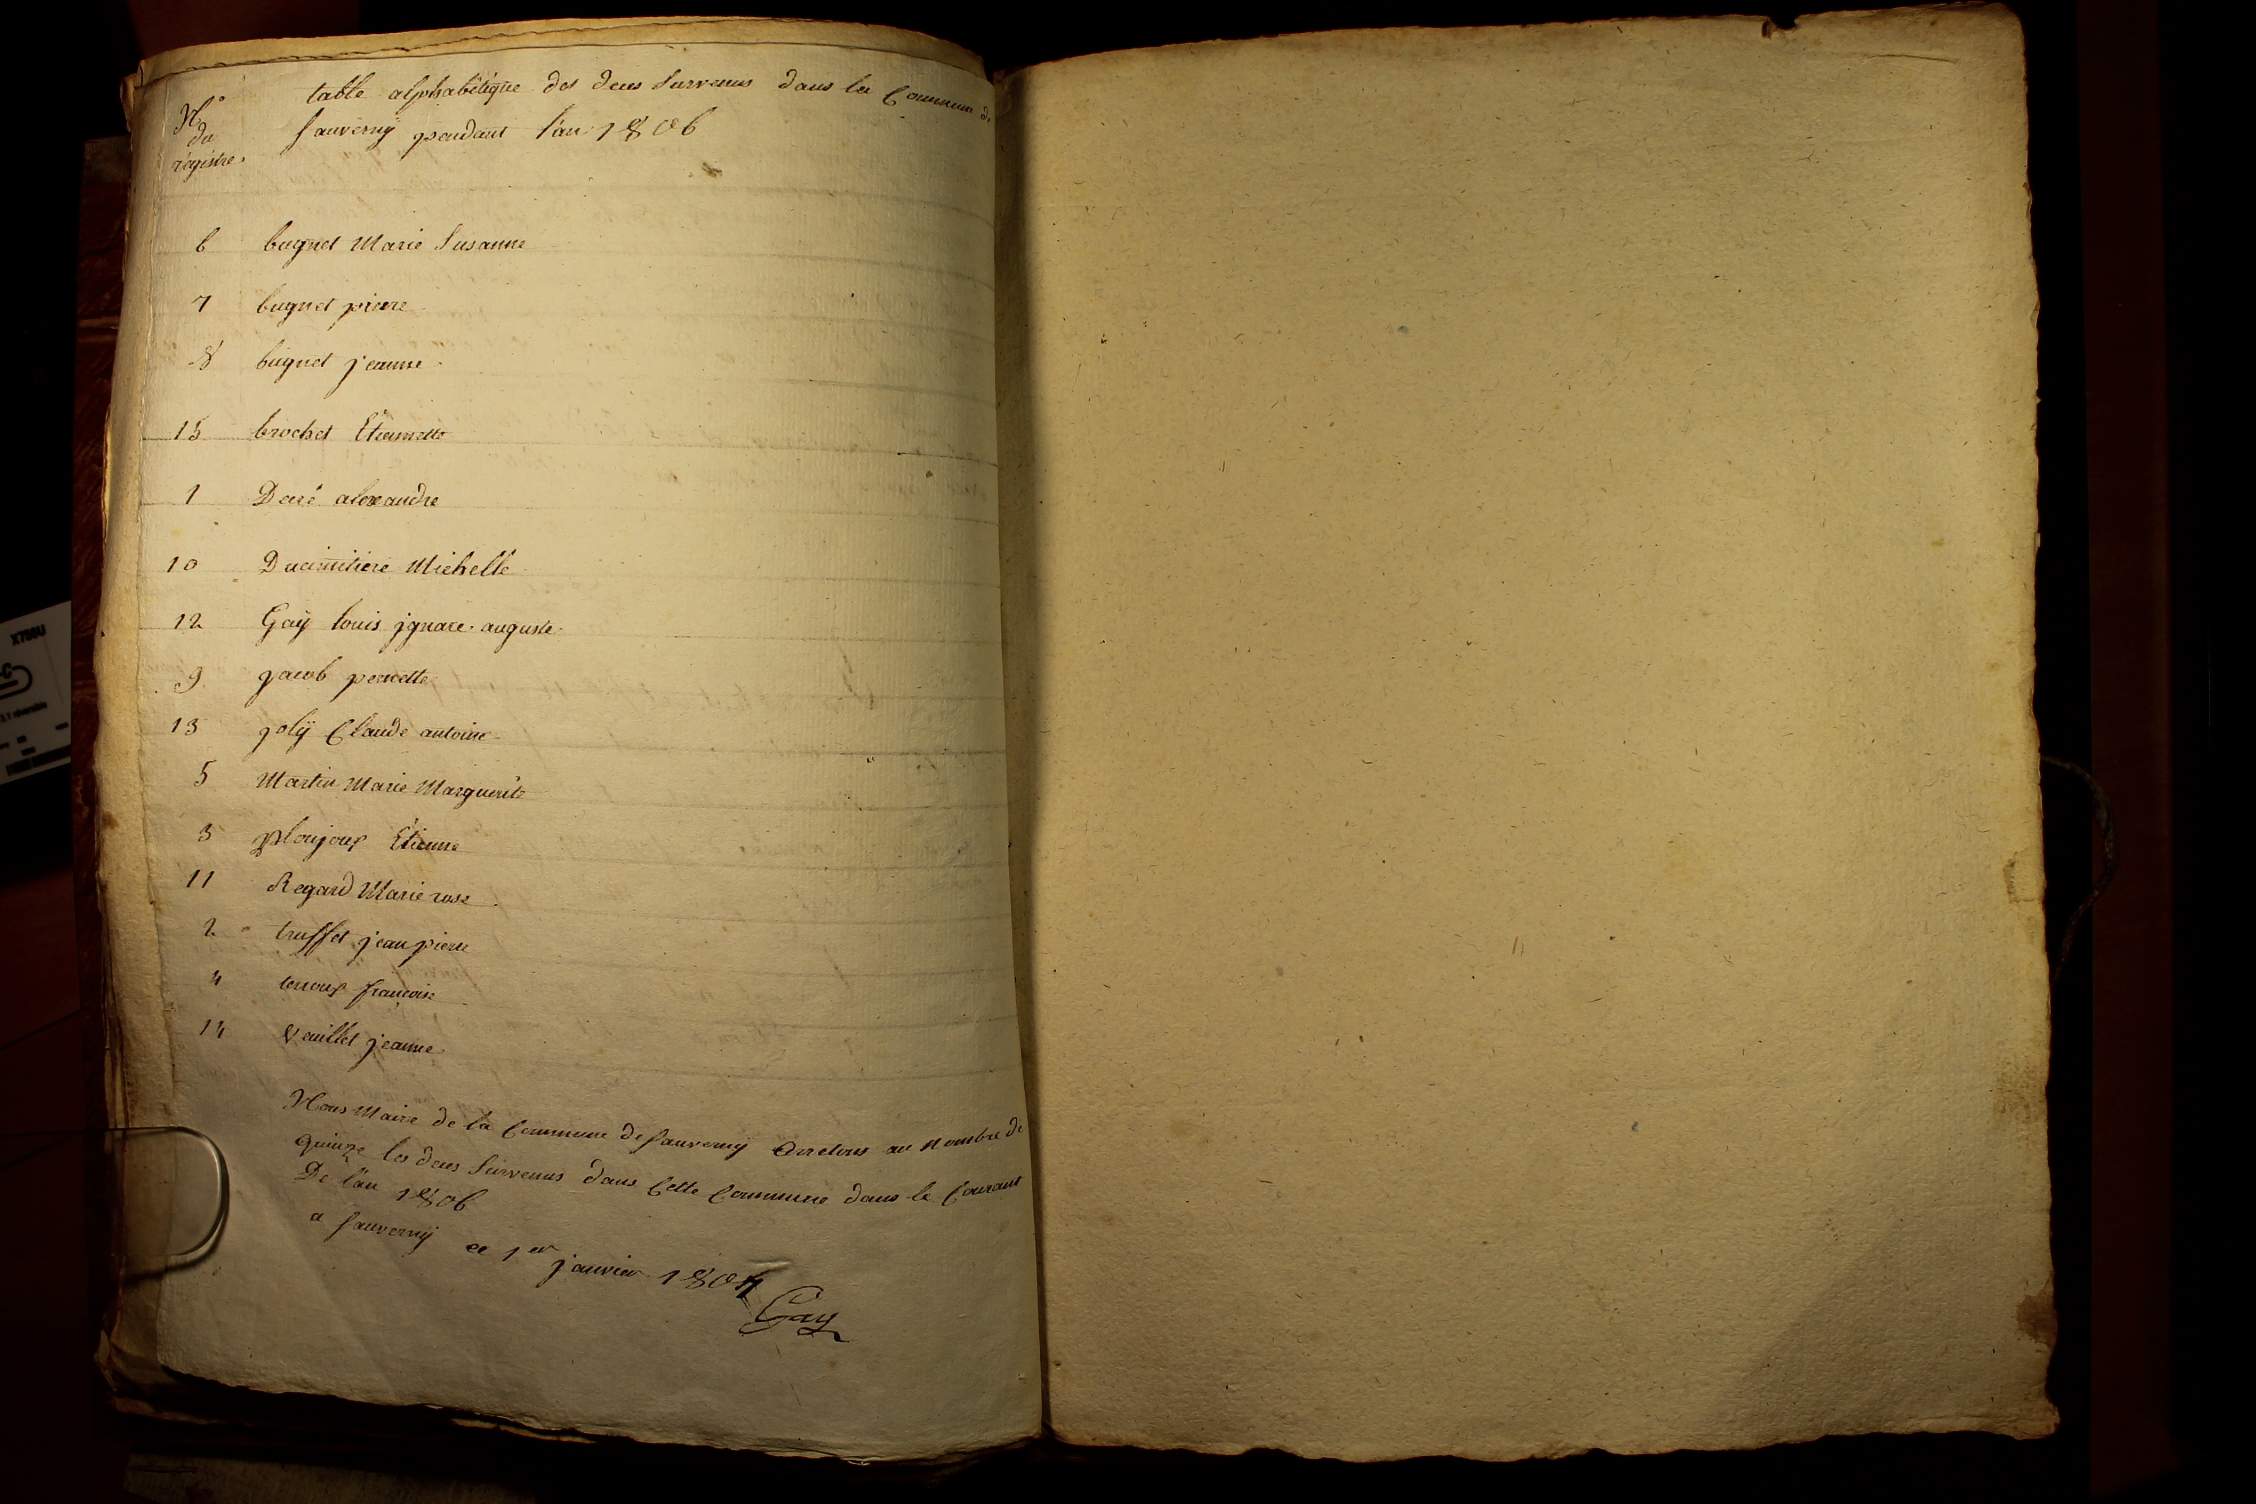 N.o
du
régistre.
table alphabétique des deces Survenus dans la Commune de
Sauvernÿ pendant l'an 1806
6 bugnet Marie Susanne
7 bugnet pierre
8 bugnet jeanne
15 brochet Etiennette
1 Deré alexandre
10 Ducimitiere Michelle
12 Gaÿ louis jgnace auguste
9 jacob pernette
13 jolÿ Claude antoine
5 Martin Marie Marguerite
3 ploujoux Etienne
11 Regard Marie rose
2 truffet jean pierre
4 terroux françoise
14 Vaillet jeanne
Nous Maire de la Commune de Sauvernÿ Arretons au Nombre de
quinze les deces Survenus dans Cette Commune dans le Courant
De l'an 1806
a Sauvernÿ ce 1er janvier 1807
Gay
X756U